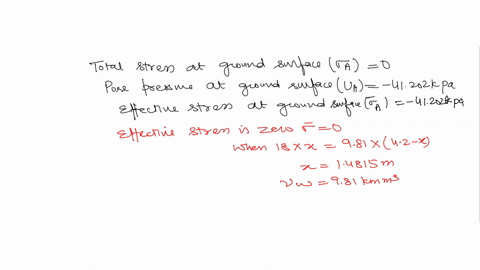 Total stress at ground surface (σ̅A) = 0
Pore pressure at ground surface (UA) = -41.202 k pa
Effective stress at ground surface (σ̅A) = -41.202 k pa
Effective stress is zero σ̅ = 0
when 18 x x = 9.81 x (4.2-x)
x = 1.4815 m
γw = 9.81 km m³